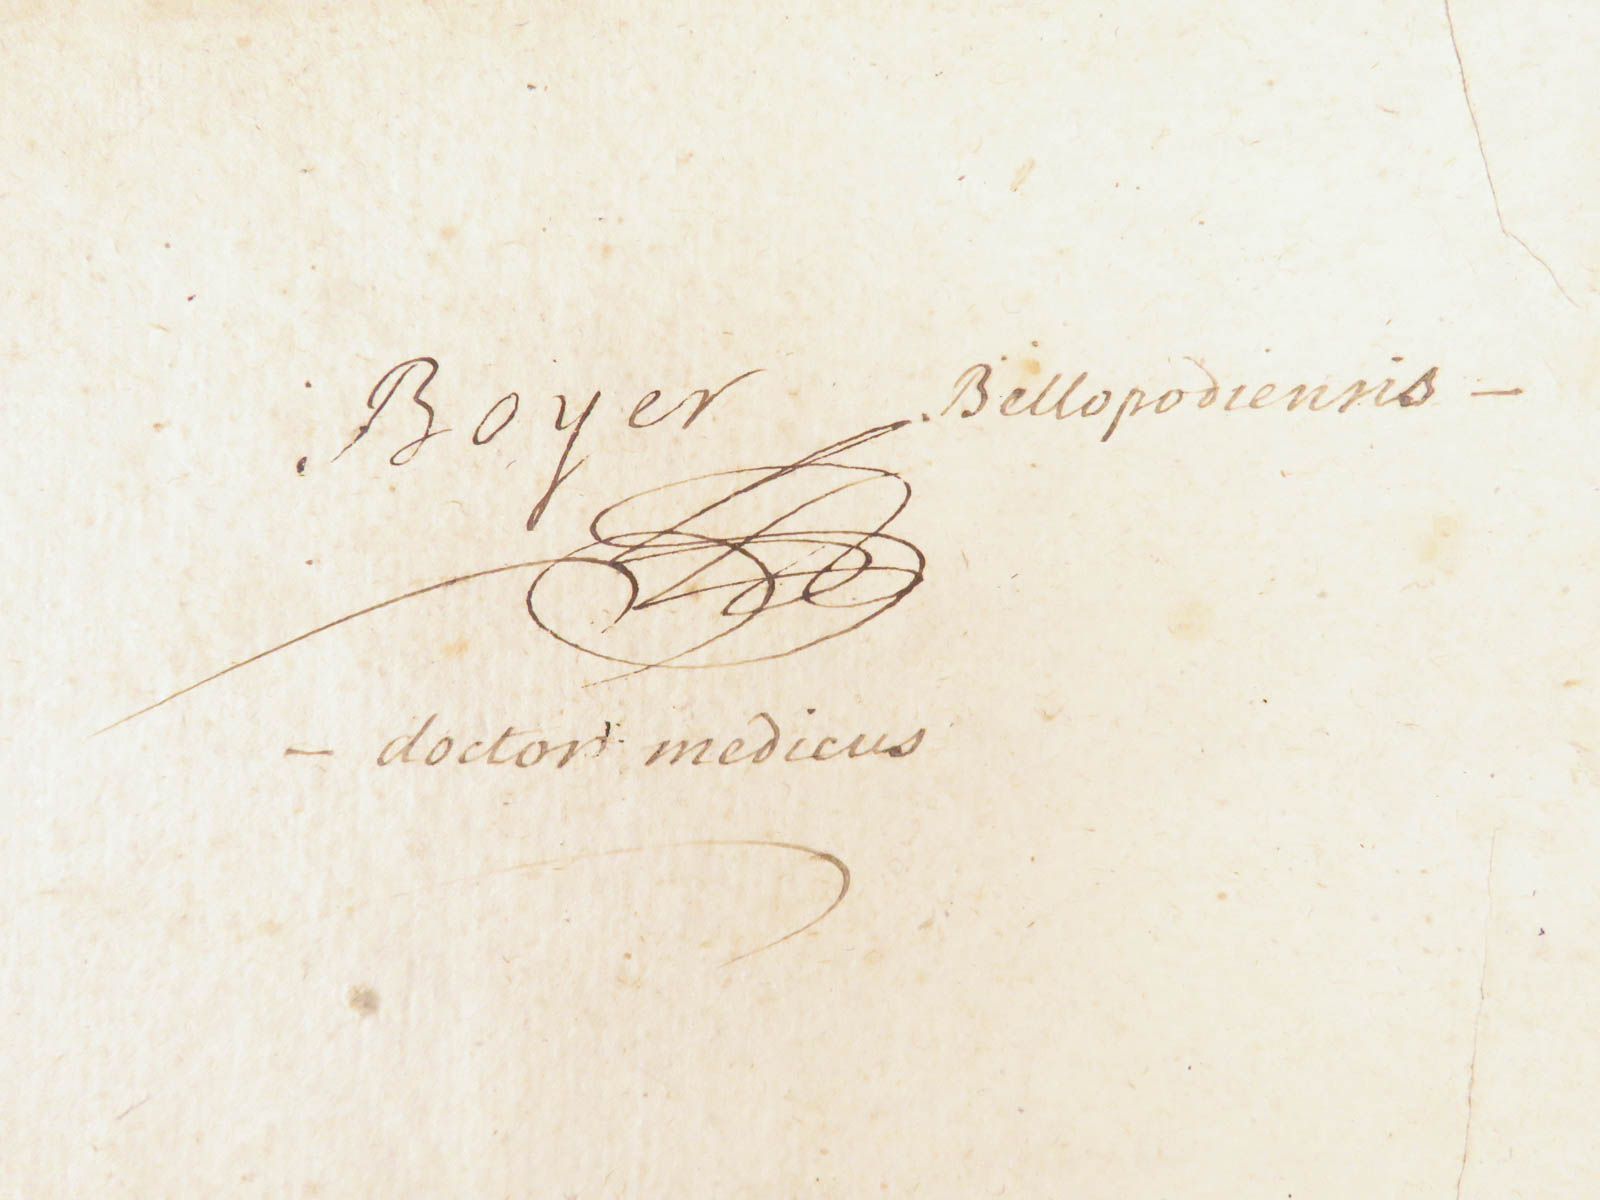 Boyer Bellopodiensis -
- doctor medicus